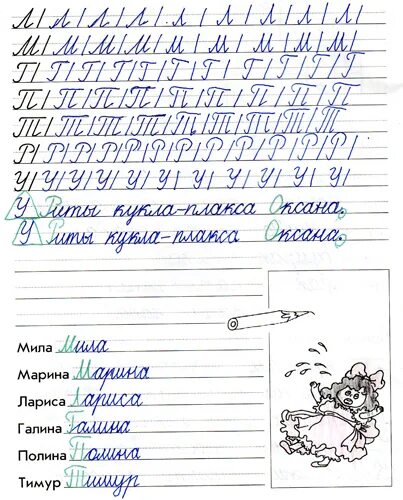 Л Л Л Л Л Л Л Л Л Л
М М М М М М М М М М
Г Г Г Г Г Г Г Г Г Г Г
П П П П П П П П П П
Т Т Т Т Т Т Т Т Т
Р Р Р Р Р Р Р Р Р Р
У У У У У У У У У У
У Риты кукла-плакса Оксана.
У Риты кукла-плакса Оксана.
Мила Мила
Марина Марина
Лариса Лариса
Галина Галина
Полина Полина
Тимур Тимур